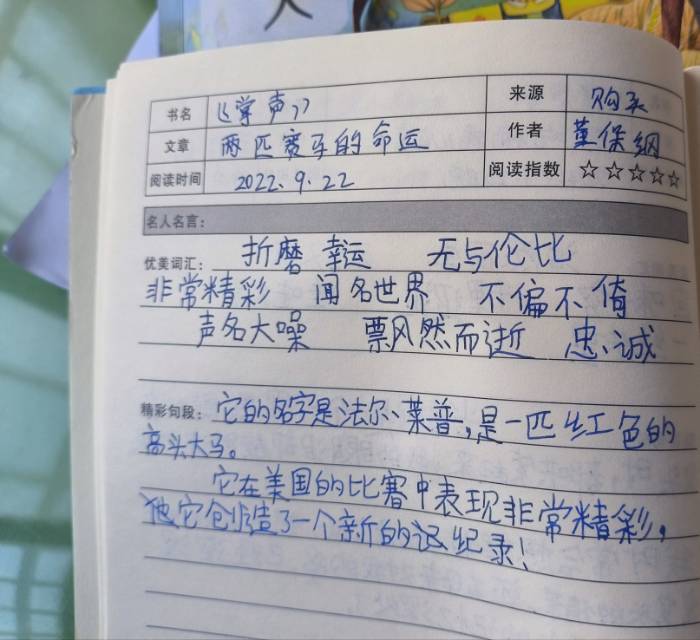 书名 《掌声》 来源 购买
文章 两匹赛马的命运 作者 董保纲
阅读时间 2022.9.22 阅读指数 ☆☆☆☆☆
名人名言：
优美词汇： 折磨 幸运 无与伦比
非常精彩 闻名世界 不偏不倚
声名大噪 飘风然而逝 忠诚
精彩句段： 它的名字是法尔、莱普，是一匹红色的
高头大马。
它在美国的比赛中表现非常精彩，
他它创造了一个新的记纪录！